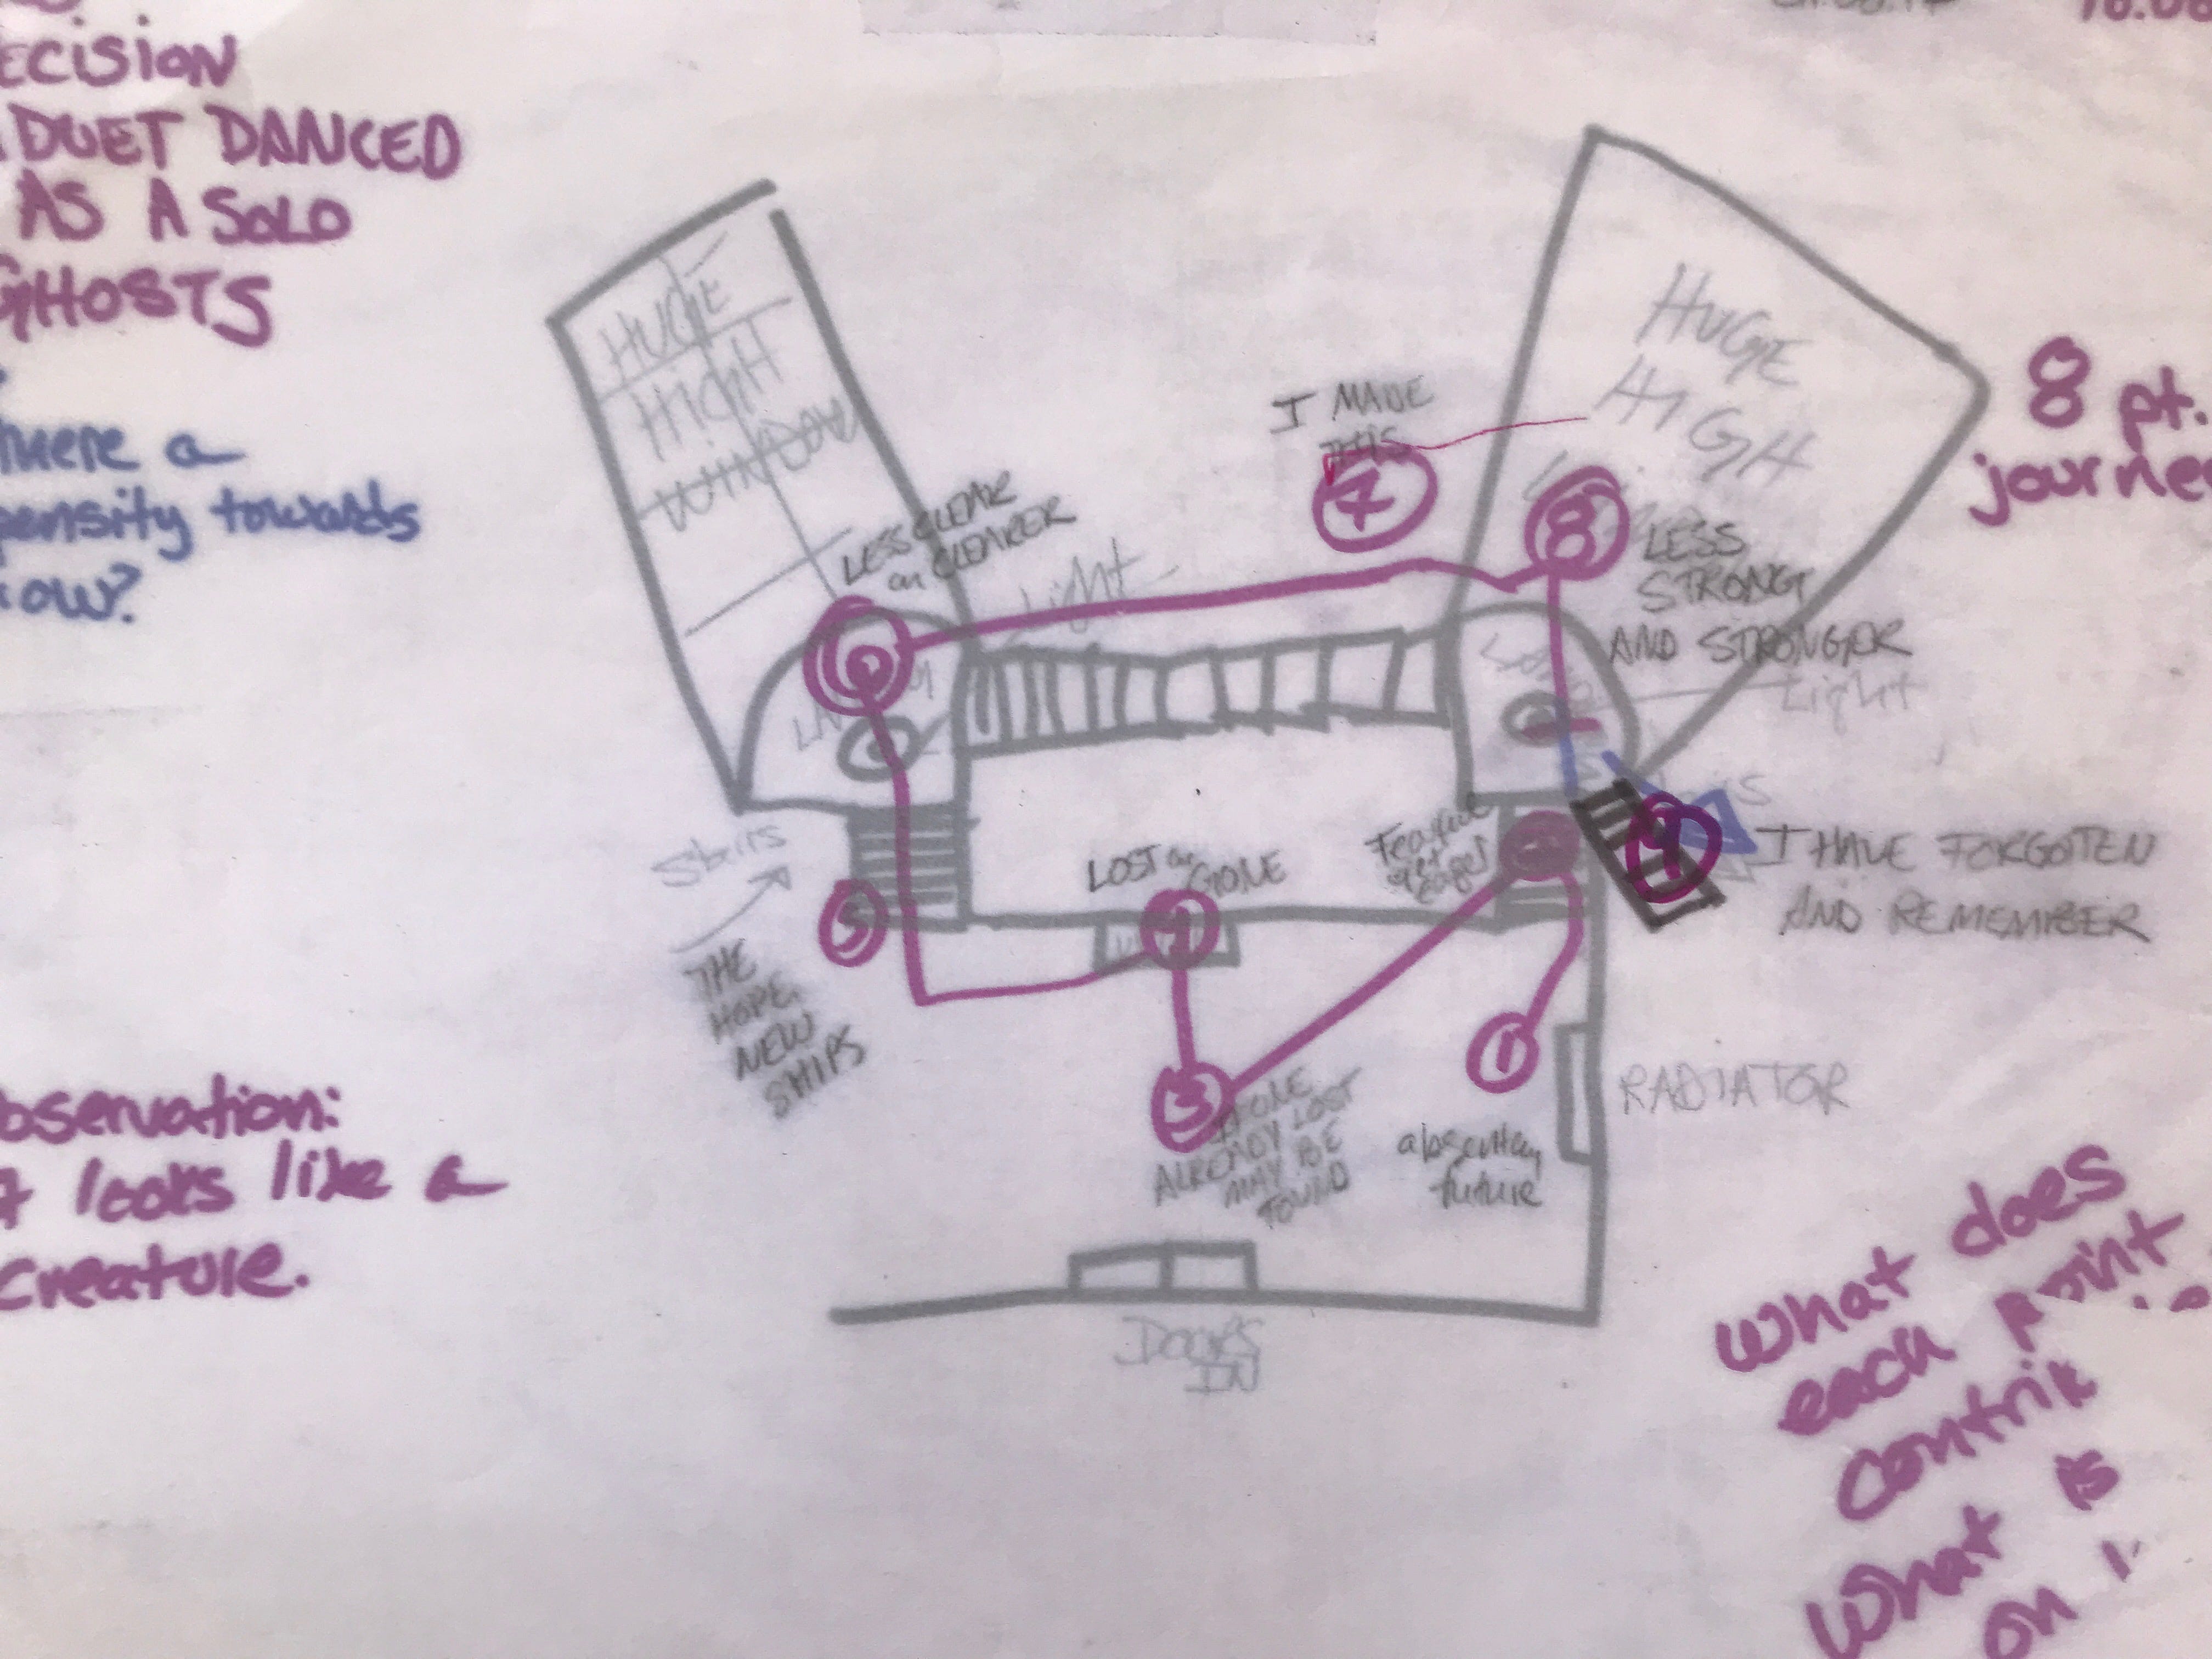 ECISION
DUET DANCED
AS A SOLO
GHOSTS
here a
pensity towards
ow?
bservation:
looks like a
creature.
HUGE
HIGH
WINDOW
LESS CLEAR
or CLEARER
Light
I MADE
THIS
7
HUGE
HIGH
8
LESS
STRONG
AND STRONGER
Light
8 pt.
journe
6
Stairs
5
THE
HOPE,
NEW
SHIPS
LOST or GONE
4
9
I HAVE FORGOTTEN
AND REMEMBER
3
ALREADY LOST
MAY BE
FOUND
1
future
RADIATOR
DOORS
IN
What does
each point
contrib
What is
on